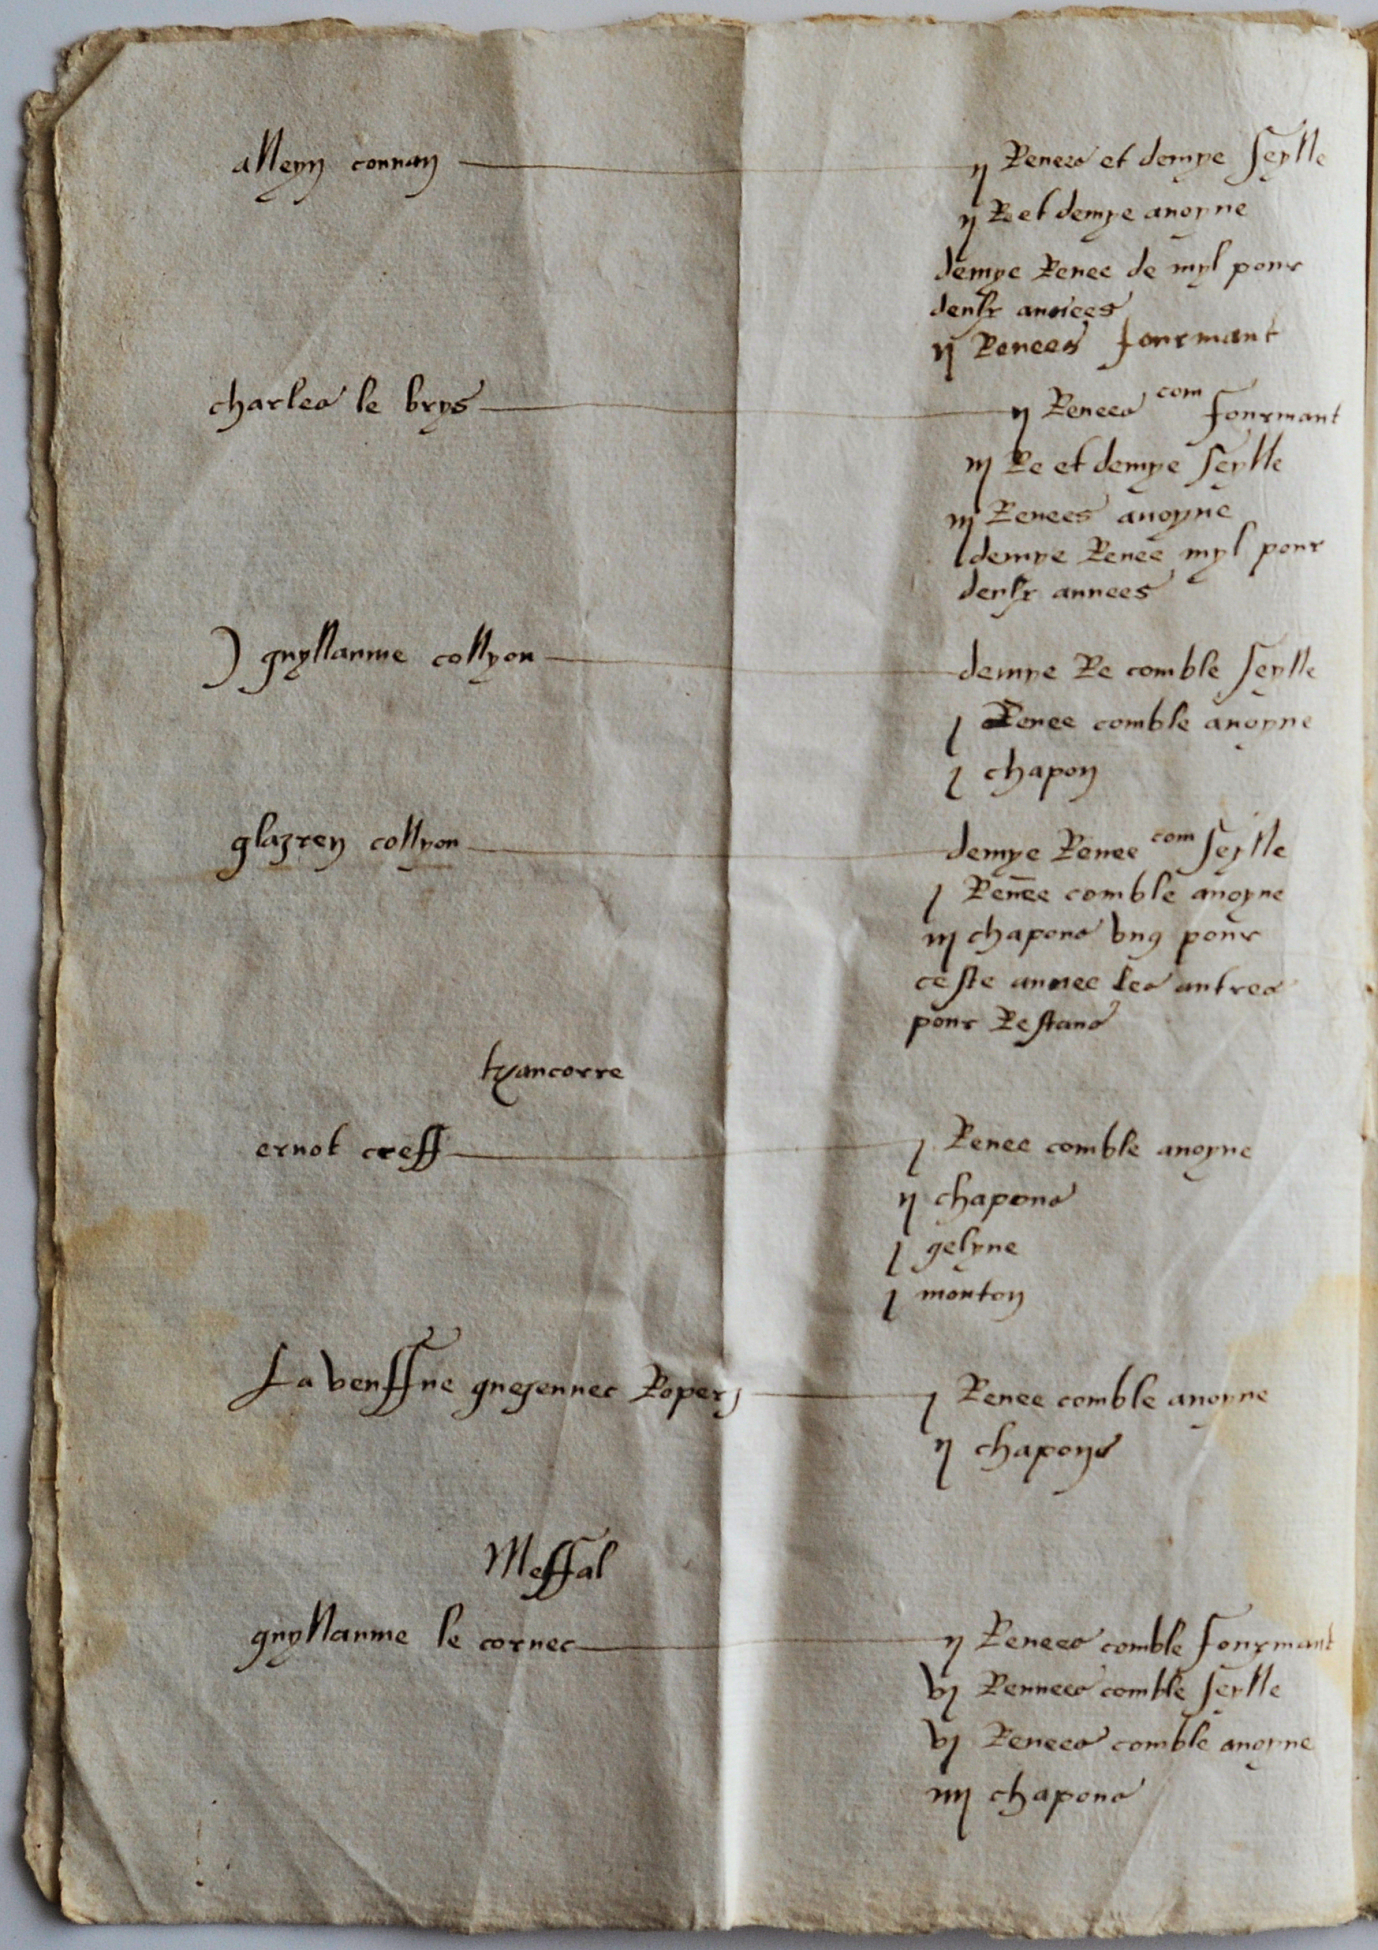 alleyn connan ij Renees et demye seylle
ij R et demye avoyne
demye Renee de myl pour
deulx annees
ij Renees fourmant
charles le brys ij Renees com fourmant
iij Re et demye seylle
iij Renees avoyne
demye Renee myl pour
deulx annees
) guyllaume collyou demye Re comble seylle
j Renee comble avoyne
j chapon
glazren collyou demye Renee com seylle
j Renee comble avoyne
iij chapons ung pour
ceste annee les autres
pour Restans
kancorre
ernot creff j Renee comble avoyne
ij chapons
j gelyne
j mouton
La veuffve guezennec Roperz j Renee comble avoyne
ij chapons
Meffal
guyllaume le cornec ij Renees comble fourmant
vj Rennees comble seylle
vj Renees comble avoyne
iiij chapons